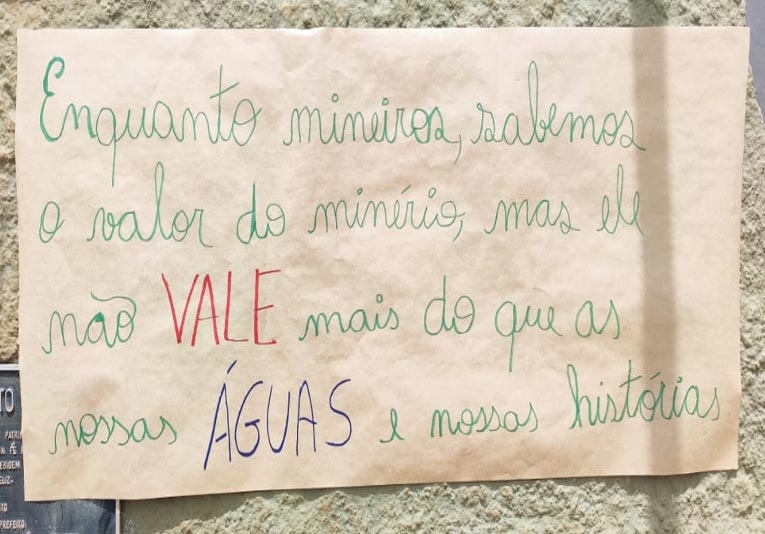 Enquanto mineiros, sabemos
o valor do minério, mas ele
não VALE mais do que as
nossas ÁGUAS e nossas histórias
TO
PATRI
A FÉ
RESIDEM
ELIZ-
STO
PREFEITO